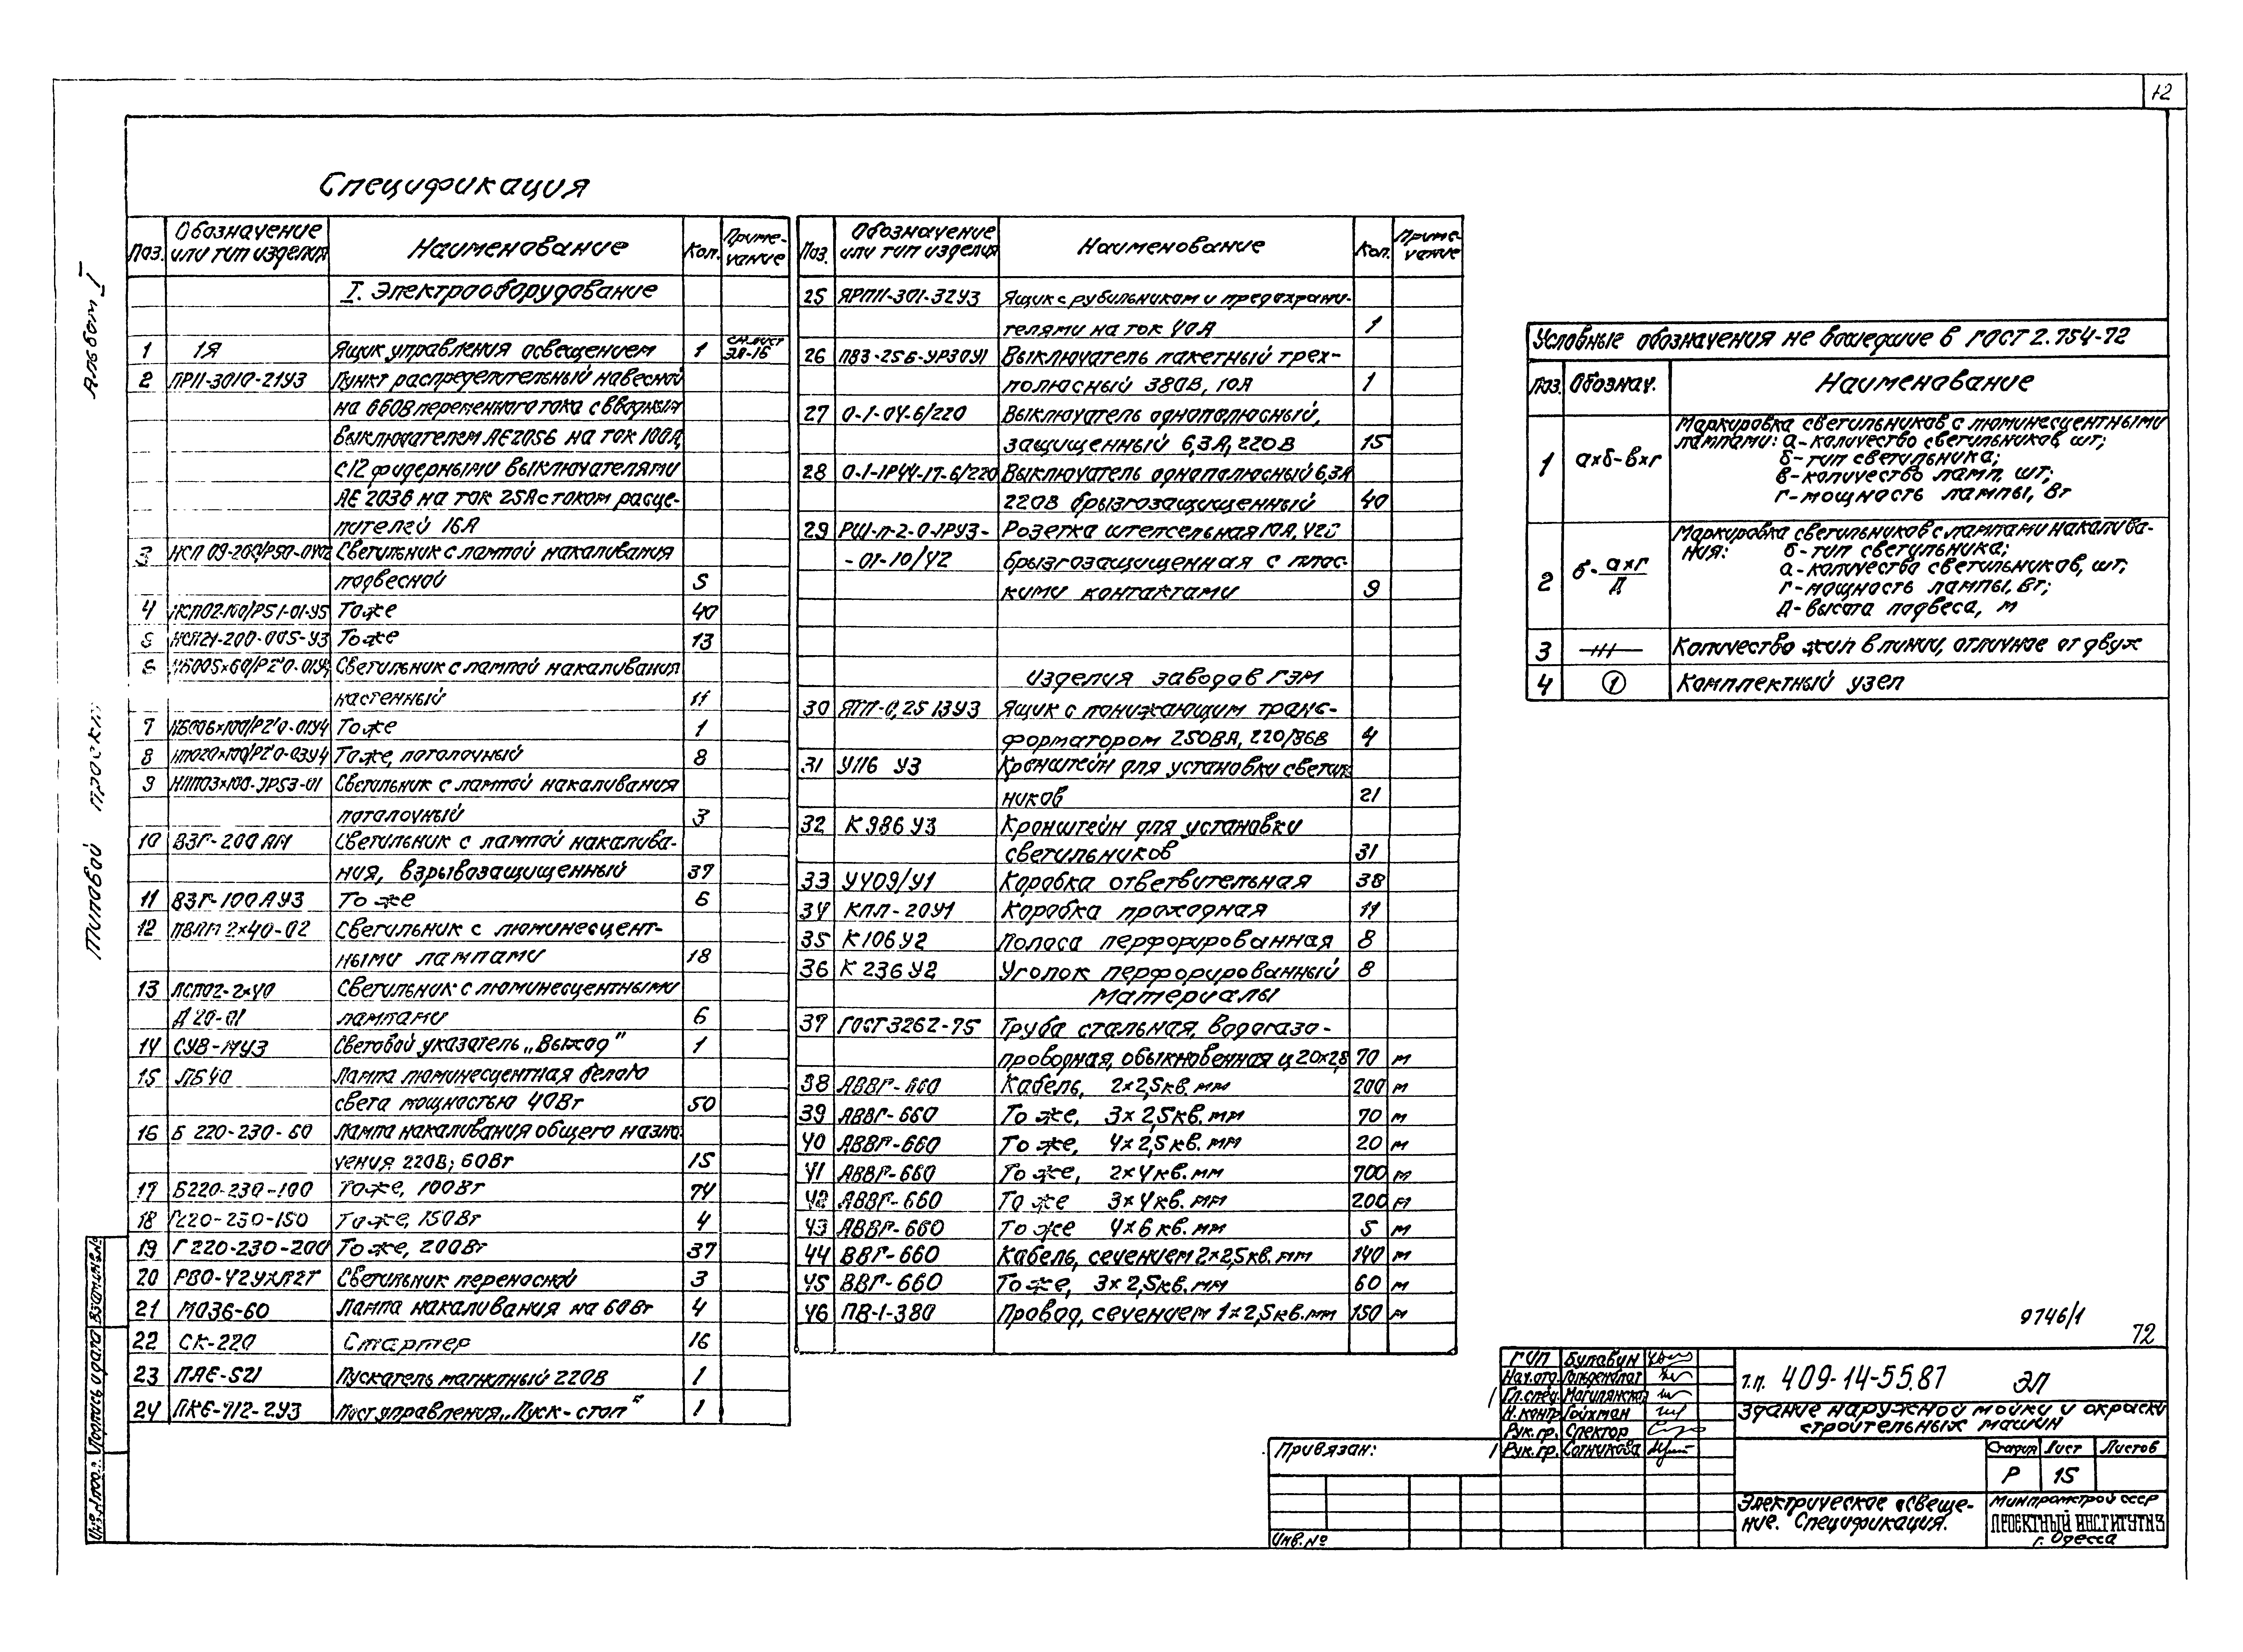 72
Спецификация
Альбом I
Типовой проект
Поз. Обозначение или тип изделия Наименование Кол. Примечание
I. Электрооборудование
1 1Я Ящик управления освещением 1 см. лист ЭЛ-16
2 ПР11-3010-21У3 Пункт распределительный навесной
на 660В переменного тока с вводным
выключателем АЕ2056 на ток 100А,
с 12 фидерными выключателями
АЕ 2036 на ток 25А с током расце-
пителей 16А
3 НСП 09-200/Р50-0У02 Светильник с лампой накаливания
подвесной 5
4 НСП02-100/Р51-01-У5 То же 40
5 НСП21-200-005-У3 То же 13
6 НБ005х60/Р2'0-01У4 Светильник с лампой накаливания
настенный 11
7 НБ006х100/Р2'0-01У4 То же 1
8 НП020х100/Р2'0-03У4 То же, потолочный 8
9 НПП03х100-JР53-01 Светильник с лампой накаливания
потолочный 3
10 ВЗГ-200АМ Светильник с лампой накалива-
ния, взрывозащищенный 37
11 ВЗГ-100АУ3 То же 6
12 ПВЛМ 2х40-02 Светильник с люминесцент-
ными лампами 18
13 ЛСП02-2х40 Светильник с люминесцентными
Д20-01 лампами 6
14 СУВ-МУ3 Световой указатель „Выход" 1
15 ЛБ40 Лампа люминесцентная белого
света мощностью 40Вт 50
16 Б 220-230-60 Лампа накаливания общего назна-
чения 220В; 60Вт 15
17 Б220-230-100 То же, 100Вт 74
18 Г220-230-150 То же, 150Вт 4
19 Г220-230-200 То же, 200Вт 37
20 РВО-42УХЛ2Т Светильник переносной 3
21 МО36-60 Лампа накаливания на 60Вт 4
22 СК-220 Стартер 16
23 ПАЕ-521 Пускатель магнитный 220В 1
24 ПКЕ-712-2У3 Пост управления „Пуск-стоп" 1
Поз. Обозначение или тип изделия Наименование Кол. Примечание
25 ЯРП11-301-32У3 Ящик с рубильником и предохрани-
телями на ток 40А 1
26 ПВ3-25Б-УР30У1 Выключатель пакетный трех-
полюсный 380В, 10А 1
27 0-1-04-6/220 Выключатель однополюсный,
защищенный 6,3А, 220В 15
28 0-1-IР44-17-6/220 Выключатель однополюсный 6,3А
220В брызгозащищенный 40
29 РШ-п-2-0-IРУ3- Розетка штепсельная 10А,
-01-10/42 брызгозащищенная с плос-
кими контактами 9
Изделия заводов ГЭМ
30 ЯТП-0,25 13У3 Ящик с понижающим транс-
форматором 250ВА, 220/36В 4
31 У116 У3 Кронштейн для установки светиль-
ников 21
32 К986 У3 Кронштейн для установки
светильников 31
33 У409/У1 Коробка ответвительная 38
34 КПЛ-20У1 Коробка проходная 11
35 К106У2 Полоса перфорированная 8
36 К236У2 Уголок перфорированный 8
Материалы
37 ГОСТ3262-75 Труба стальная, водогазо-
проводная, обыкновенная ц 20х2,8 70 м
38 АВВГ-660 Кабель, 2х2,5кв.мм 200 м
39 АВВГ-660 То же, 3х2,5кв.мм 70 м
40 АВВГ-660 То же, 4х2,5кв.мм 20 м
41 АВВГ-660 То же, 2х4кв.мм 700 м
42 АВВГ-660 То же 3х4кв.мм 200 м
43 АВВГ-660 То же 4х6кв.мм 5 м
44 ВВГ-660 Кабель, сечением 2х2,5кв.мм 140 м
45 ВВГ-660 То же, 3х2,5кв.мм 60 м
46 ПВ-1-380 Провод, сечением 1х2,5кв.мм 150 м
Условные обозначения не вошедшие в ГОСТ 2.754-72
Поз. Обознач. Наименование
Маркировка светильников с люминесцентными
лампами: а-количество светильников, шт;
б-тип светильника;
1 ахб-вхг
в-количество ламп, шт;
г-мощность лампы, Вт
Маркировка светильников с лампами накалива-
ния: б-тип светильника;
2 б-ахг/Д
а-количество светильников, шт;
г-мощность лампы, Вт;
Д-высота подвеса, м
3 Количество жил в линии, отличное от двух
4 1 Комплектный узел
9746/1
72
ГИП Булавин
Нач.отд. Гольденблат
Гл.спец. Магилянская
Н.контр. Гойхман
Рук.гр. Спектор
Рук.гр. Сотникова
т.п. 409-14-55.87 ЭЛ
Здание наружной мойки и окраски
строительных машин
Стадия Лист Листов
Р 15
Электрическое освеще-
ние. Спецификация.
Минпромстрой СССР
ПРОЕКТНЫЙ ИНСТИТУТ №3
г. Одесса
Привязан:
Инв.№
Взам.инв.№
Подпись и дата
Инв.№ подл.